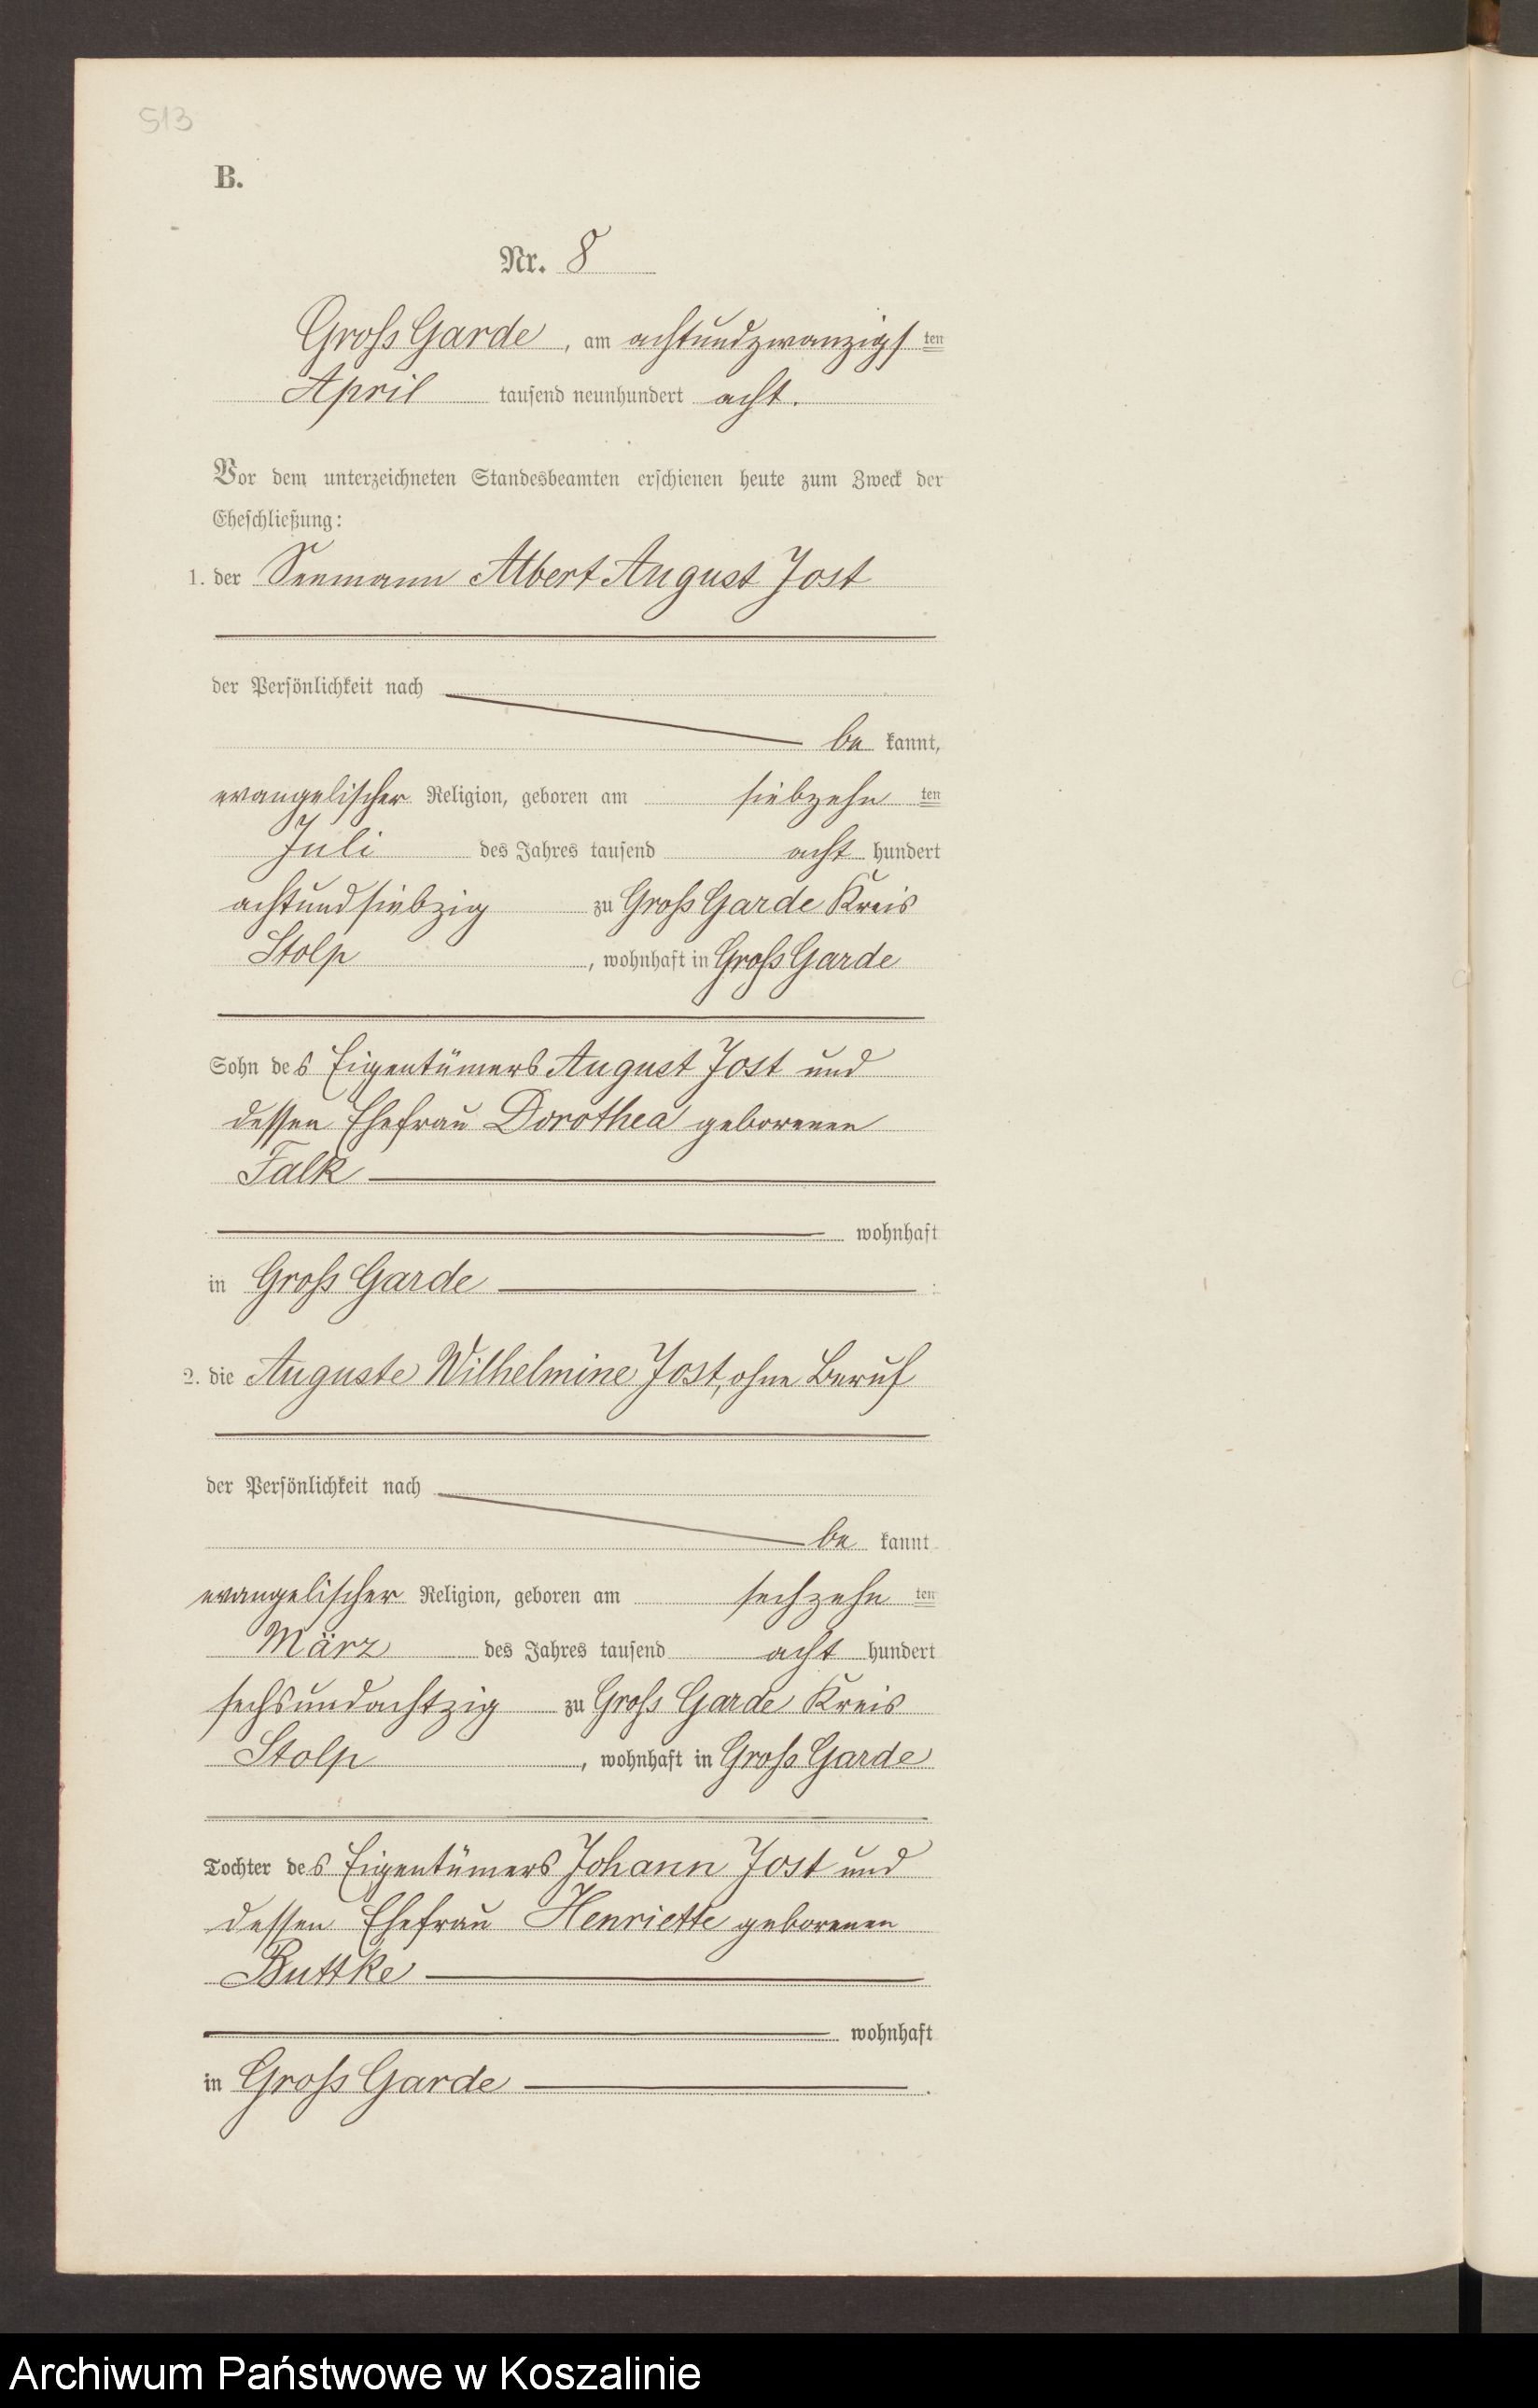 513
B.
Nr. 8
Groß Garde, am achtundzwanzigsten
April tausend neunhundert acht.
Vor dem unterzeichneten Standesbeamten erschienen heute zum Zweck der
Eheschließung:
1. der Seemann Albert August Jost
der Persönlichkeit nach
be kannt,
evangelischer Religion, geboren am siebzehn ten
Juli des Jahres tausend acht hundert
achtundsiebzig zu Groß Garde Kreis
Stolp, wohnhaft in Groß Garde
Sohn des Eigentümers August Jost und
dessen Ehefrau Dorothea geborenen
Falk
wohnhaft
in Groß Garde
2. die Auguste Wilhelmine Jost, ohne Beruf
der Persönlichkeit nach
be kannt
evangelischer Religion, geboren am sechzehn ten
März des Jahres tausend acht hundert
sechsundachtzig zu Groß Garde Kreis
Stolp, wohnhaft in Groß Garde
Tochter des Eigentümers Johann Jost und
dessen Ehefrau Henriette geborenen
Buttke
wohnhaft
in Groß Garde.
Archiwum Państwowe w Koszalinie